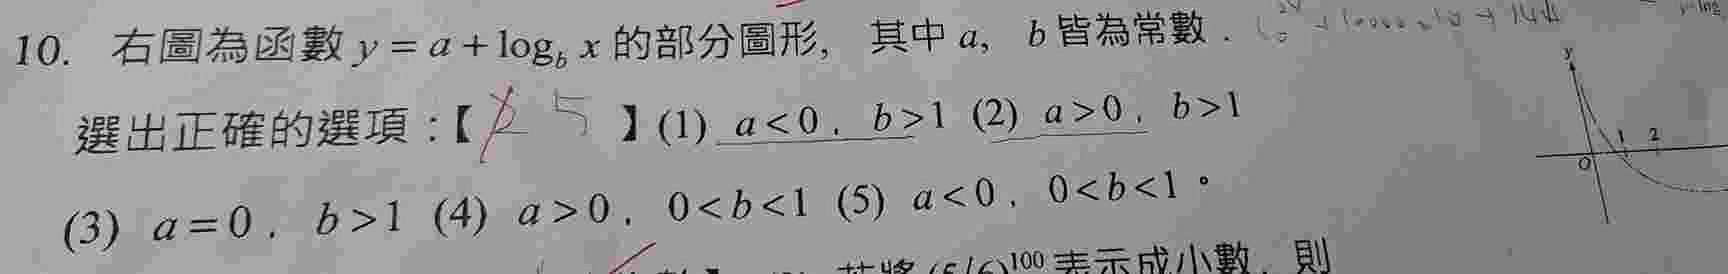 10. 右圖為函數 y = a + log_b x 的部分圖形， 其中 a， b 皆為常數．
選出正確的選項：【 5 】(1) a<0．b>1 (2) a>0．b>1
(3) a=0．b>1 (4) a>0．0<b<1 (5) a<0．0<b<1。
y
1 2
O
(5/6)^100 表示成小數，則